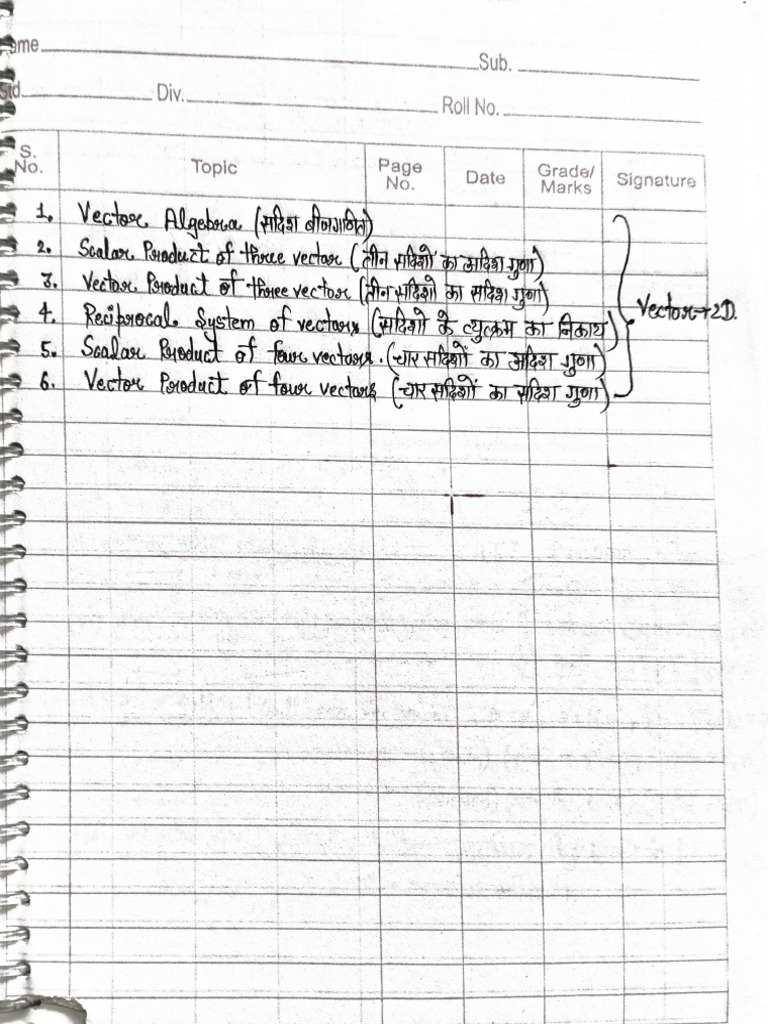 ame Sub.
Std. Div. Roll No.
S. No. Topic Page No. Date Grade/ Marks Signature
1. Vector Algebra (सदिश बीजगणित)
2. Scalar Product of three vector (तीन सदिशों का अदिश गुणा)
3. Vector Product of three vector (तीन सदिशों का सदिश गुणा)
4. Reciprocal System of vectors (सदिशों के व्युत्क्रम का निकाय)
5. Scalar Product of four vectors. (चार सदिशों का अदिश गुणा)
6. Vector Product of four vectors (चार सदिशों का सदिश गुणा)
Vector→2D.